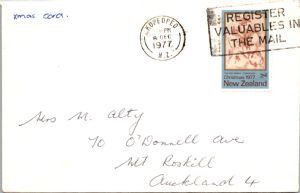 xmas card.
-PM
DEC
1977
N.Z.
REGISTER
VALUABLES IN
THE MAIL
Christmas 1977
New Zealand
Mrs M. Alty
70 O'Donnell Ave
Mt Roskill
Auckland 4